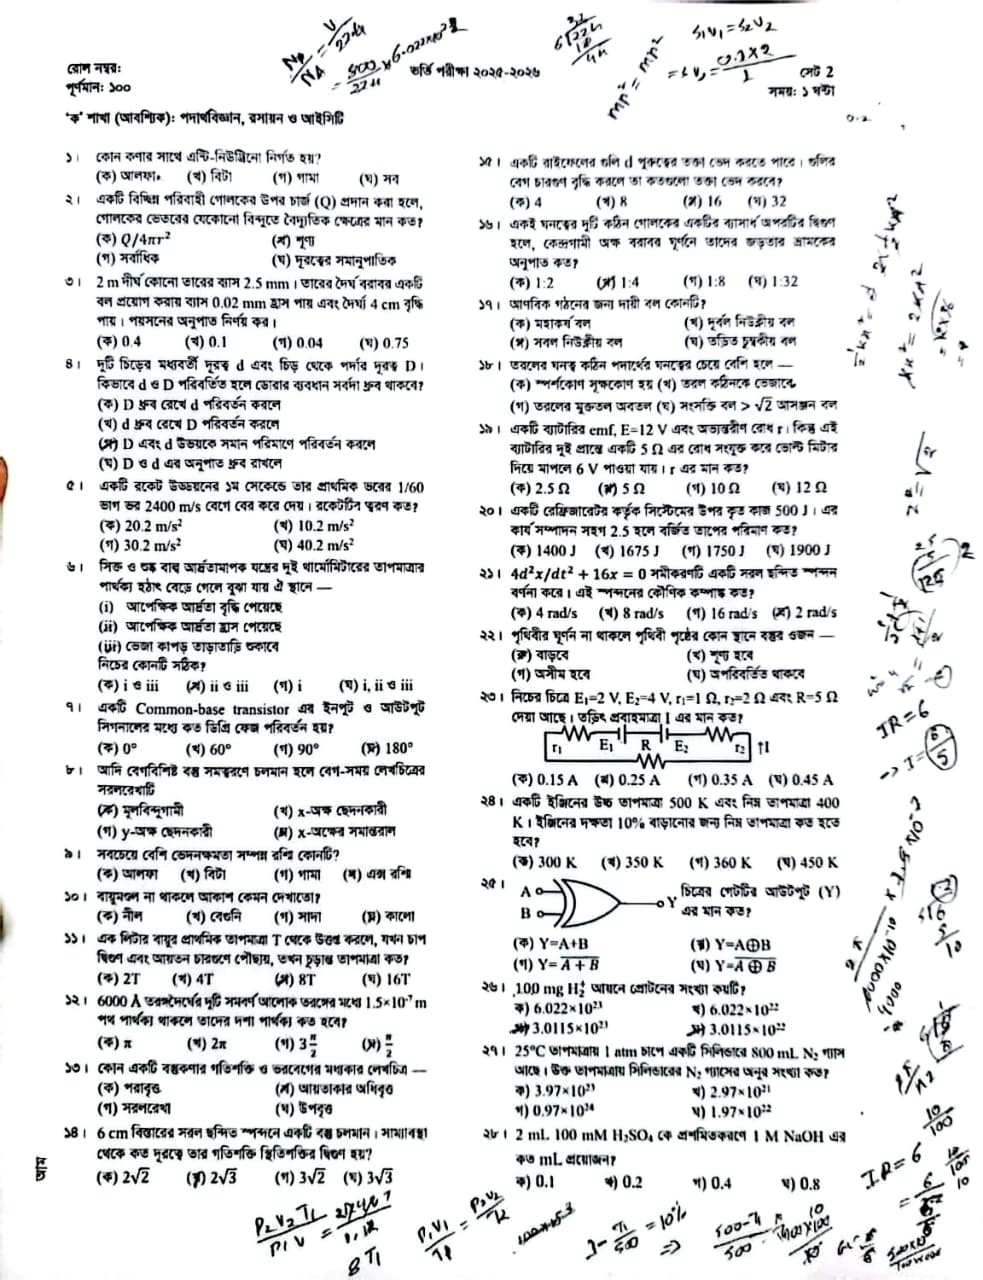 রোল নম্বর:
পূর্ণমান: ১০০
ভর্তি পরীক্ষা ২০২৫-২০২৬
সেট 2
সময়: ১ ঘন্টা
'ক' শাখা (আবশ্যিক): পদার্থবিজ্ঞান, রসায়ন ও আইসিটি
১। কোন কণার সাথে এন্টি-নিউট্রিনো নির্গত হয়?
(ক) আলফা (খ) বিটা (গ) গামা (ঘ) সব
২। একটি বিচ্ছিন্ন পরিবাহী গোলকের উপর চার্জ (Q) প্রদান করা হলে,
গোলকের ভেতরের যেকোনো বিন্দুতে বৈদ্যুতিক ক্ষেত্রের মান কত?
(ক) Q/4πr² (খ) শূণ্য
(গ) সর্বাধিক (ঘ) দূরত্বের সমানুপাতিক
৩। 2 m দীর্ঘ কোনো তারের ব্যাস 2.5 mm। তারের দৈর্ঘ বরাবর একটি
বল প্রয়োগ করায় ব্যাস 0.02 mm হ্রাস পায় এবং দৈর্ঘ্য 4 cm বৃদ্ধি
পায়। পয়সনের অনুপাত নির্ণয় কর।
(ক) 0.4 (খ) 0.1 (গ) 0.04 (ঘ) 0.75
৪। দুটি চিড়ের মধ্যবর্তী দূরত্ব d এবং চিড় থেকে পর্দার দূরত্ব D।
কিভাবে d ও D পরিবর্তিত হলে ডোরার ব্যবধান সর্বদা ধ্রুব থাকবে?
(ক) D ধ্রুব রেখে d পরিবর্তন করলে
(খ) d ধ্রুব রেখে D পরিবর্তন করলে
(গ) D এবং d উভয়কে সমান পরিমাণে পরিবর্তন করলে
(ঘ) D ও d এর অনুপাত ধ্রুব রাখলে
৫। একটি রকেট উড্ডয়নের ১ম সেকেন্ডে তার প্রাথমিক ভরের 1/60
ভাগ ভর 2400 m/s বেগে বের করে দেয়। রকেটটির ত্বরণ কত?
(ক) 20.2 m/s² (খ) 10.2 m/s²
(গ) 30.2 m/s² (ঘ) 40.2 m/s²
৬। সিক্ত ও শুষ্ক বাল্ব আর্দ্রতামাপক যন্ত্রের দুই থার্মোমিটারের তাপমাত্রার
পার্থক্য হঠাৎ বেড়ে গেলে বুঝা যায় ঐ স্থানে —
(i) আপেক্ষিক আর্দ্রতা বৃদ্ধি পেয়েছে
(ii) আপেক্ষিক আর্দ্রতা হ্রাস পেয়েছে
(iii) ভেজা কাপড় তাড়াতাড়ি শুকাবে
নিচের কোনটি সঠিক?
(ক) i ও iii (খ) ii ও iii (গ) i (ঘ) i, ii ও iii
৭। একটি Common-base transistor এর ইনপুট ও আউটপুট
সিগনালের মধ্যে কত ডিগ্রি ফেজ পরিবর্তন হয়?
(ক) 0° (খ) 60° (গ) 90° (ঘ) 180°
৮। আদি বেগবিশিষ্ট বস্তু সমত্বরণে চলমান হলে বেগ-সময় লেখচিত্রের
সরলরেখাটি
(ক) মূলবিন্দুগামী (খ) x-অক্ষ ছেদনকারী
(গ) y-অক্ষ ছেদনকারী (ঘ) x-অক্ষের সমান্তরাল
৯। সবচেয়ে বেশি ভেদনক্ষমতা সম্পন্ন রশ্মি কোনটি?
(ক) আলফা (খ) বিটা (গ) গামা (ঘ) এক্স রশ্মি
১০। বায়ুমণ্ডল না থাকলে আকাশ কেমন দেখাতো?
(ক) নীল (খ) বেগুনি (গ) সাদা (ঘ) কালো
১১। এক লিটার বায়ুর প্রাথমিক তাপমাত্রা T থেকে উত্তপ্ত করলে, যখন চাপ
দ্বিগুণ এবং আয়তন চারগুণে পৌছায়, তখন চূড়ান্ত তাপমাত্রা কত?
(ক) 2T (খ) 4T (গ) 8T (ঘ) 16T
১২। 6000 Å তরঙ্গদৈর্ঘের দুটি সমবর্ণ আলোক তরঙ্গের মধ্যে 1.5×10⁻⁷ m
পথ পার্থক্য থাকলে তাদের দশা পার্থক্য কত হবে?
(ক) π (খ) 2π (গ) 3π/2 (ঘ) π/2
১৩। কোন একটি বস্তুকণার গতিশক্তি ও ভরবেগের মধ্যকার লেখচিত্র —
(ক) পরাবৃত্ত (খ) আয়তাকার অধিবৃত্ত
(গ) সরলরেখা (ঘ) উপবৃত্ত
১৪। 6 cm বিস্তারের সরল ছন্দিত স্পন্দনে একটি বস্তু চলমান। সাম্যাবস্থা
থেকে কত দূরত্বে তার গতিশক্তি স্থিতিশক্তির দ্বিগুণ হয়?
(ক) 2√2 (খ) 2√3 (গ) 3√2 (ঘ) 3√3
১৫। একটি রাইফেলের গুলি d পুরুত্বের তক্তা ভেদ করতে পারে। গুলির
বেগ চারগুণ বৃদ্ধি করলে তা কতগুলো তক্তা ভেদ করবে?
(ক) 4 (খ) 8 (গ) 16 (ঘ) 32
১৬। একই ঘনত্বের দুটি কঠিন গোলকের একটির ব্যাসার্ধ অপরটির দ্বিগুণ
হলে, কেন্দ্রগামী অক্ষ বরাবর ঘূর্ণনে তাদের জড়তার ভ্রামকের
অনুপাত কত?
(ক) 1:2 (খ) 1:4 (গ) 1:8 (ঘ) 1:32
১৭। আণবিক গঠনের জন্য দায়ী বল কোনটি?
(ক) মহাকর্ষ বল (খ) দূর্বল নিউক্লীয় বল
(গ) সবল নিউক্লীয় বল (ঘ) তড়িত চুম্বকীয় বল
১৮। তরলের ঘনত্ব কঠিন পদার্থের ঘনত্বের চেয়ে বেশি হলে —
(ক) স্পর্শকোণ সূক্ষকোণ হয় (খ) তরল কঠিনকে ভেজাবে
(গ) তরলের মুক্ততল অবতল (ঘ) সংসক্তি বল > √2 আসঞ্জন বল
১৯। একটি ব্যাটারির emf, E=12 V এবং অভ্যন্তরীণ রোধ r। কিন্তু এই
ব্যাটারির দুই প্রান্তে একটি 5 Ω এর রোধ সংযুক্ত করে ভোল্ট মিটার
দিয়ে মাপলে 6 V পাওয়া যায়। r এর মান কত?
(ক) 2.5 Ω (খ) 5 Ω (গ) 10 Ω (ঘ) 12 Ω
২০। একটি রেফ্রিজারেটর কর্তৃক সিস্টেমের উপর কৃত কাজ 500 J। এর
কার্য সম্পাদন সহগ 2.5 হলে বর্জিত তাপের পরিমাণ কত?
(ক) 1400 J (খ) 1675 J (গ) 1750 J (ঘ) 1900 J
২১। 4d²x/dt² + 16x = 0 সমীকরণটি একটি সরল ছন্দিত স্পন্দন
বর্ণনা করে। এই স্পন্দনের কৌণিক কম্পাঙ্ক কত?
(ক) 4 rad/s (খ) 8 rad/s (গ) 16 rad/s (ঘ) 2 rad/s
২২। পৃথিবীর ঘূর্ণন না থাকলে পৃথিবী পৃষ্ঠের কোন স্থানে বস্তুর ওজন —
(ক) বাড়বে (খ) শূণ্য হবে
(গ) অসীম হবে (ঘ) অপরিবর্তিত থাকবে
২৩। নিচের চিত্রে E₁=2 V, E₂=4 V, r₁=1 Ω, r₂=2 Ω এবং R=5 Ω
দেয়া আছে। তড়িৎ প্রবাহমাত্রা I এর মান কত?
r₁ E₁ R E₂ r₂ ↑I
(ক) 0.15 A (খ) 0.25 A (গ) 0.35 A (ঘ) 0.45 A
২৪। একটি ইঞ্জিনের উচ্চ তাপমাত্রা 500 K এবং নিম্ন তাপমাত্রা 400
K। ইঞ্জিনের দক্ষতা 10% বাড়ানোর জন্য নিম্ন তাপমাত্রা কত হতে
হবে?
(ক) 300 K (খ) 350 K (গ) 360 K (ঘ) 450 K
২৫। A B Y চিত্রের গেটটির আউটপুট (Y)
এর মান কত?
(ক) Y=A+B (খ) Y=A⊕B
(গ) Y=A̅ ̅+̅ ̅B̅ (ঘ) Y=A̅ ̅⊕̅ ̅B̅
২৬। 100 mg H₂⁺ আয়নে প্রোটনের সংখ্যা কয়টি?
ক) 6.022×10²³ খ) 6.022×10²²
গ) 3.0115×10²³ ঘ) 3.0115×10²²
২৭। 25°C তাপমাত্রায় 1 atm চাপে একটি সিলিন্ডারে 800 mL N₂ গ্যাস
আছে। উক্ত তাপমাত্রায় সিলিন্ডারের N₂ গ্যাসের অনুর সংখ্যা কত?
ক) 3.97×10²³ খ) 2.97×10²¹
গ) 0.97×10²⁴ ঘ) 1.97×10²²
২৮। 2 mL 100 mM H₂SO₄ কে প্রশমিতকরণে 1 M NaOH এর
কত mL প্রয়োজন?
ক) 0.1 খ) 0.2 গ) 0.4 ঘ) 0.8
S₁V₁ = S₂V₂
IR = 6
IR = 6